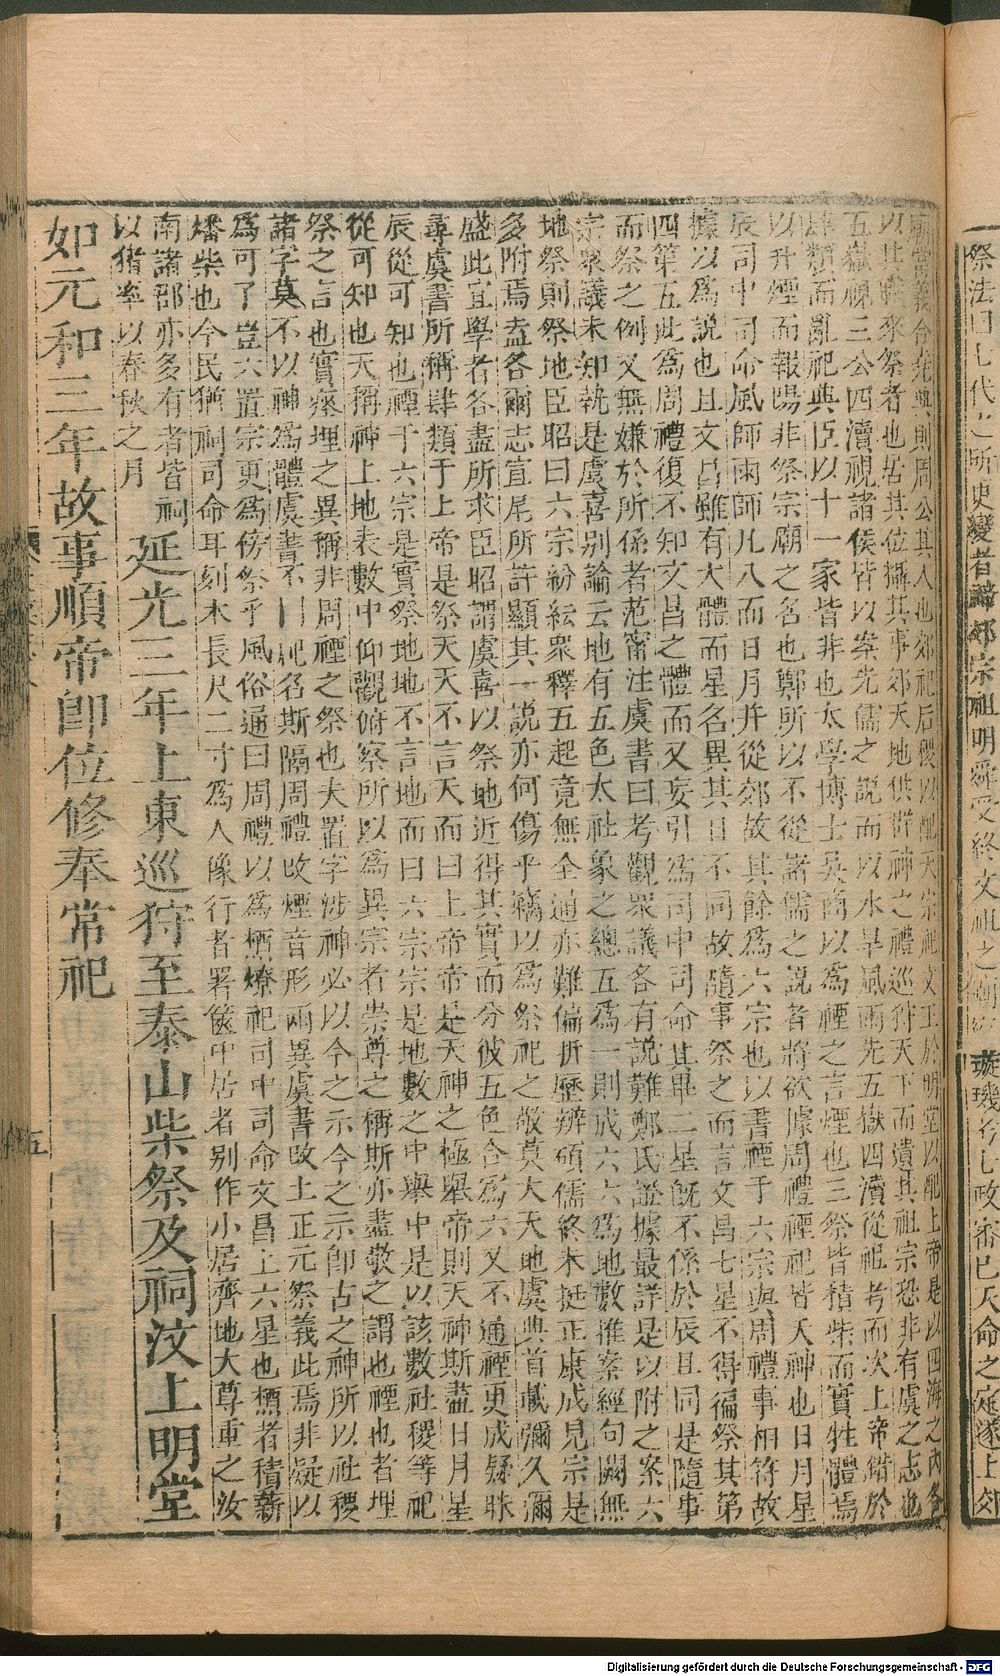 祭法曰七代之所更變者禘郊宗祖明舜受終文祖之　璇璣七政審已天命之定遂上郊
廟當義合堯典則周公其人也郊祀后稷以配天宗祀文王於明堂以配上帝是以四海之內各
以其職來祭者也居其位攝其事郊天地供群神之禮巡狩天下而遺其祖宗恐非有虞之志也
五嶽視三公四瀆視諸侯皆以案先儒之說而以水旱風雨先五嶽四瀆從祖考而次上帝錯於
肆類而亂祀典臣以十一家皆非也太學博士吳商以爲禋之言煙也三祭皆積柴而實牲體焉
以升煙而報陽非祭宗廟之名也鄭所以不從諸儒之說者將欲據周禮禋祀皆天神也日月星
辰司中司命風師雨師凡八而日月并從郊故其餘爲六宗也以書禋于六宗與周禮事相符故
據以爲說也且文昌雖有大體而星名異其日不同故隨事祭之而言文昌七星不得徧祭其第
四第五此爲周禮復不知文昌之體而又妄引爲司中司命其畢二星旣不係於辰且同是隨事
而祭之例又無嫌於所係者范甯注虞書曰考觀衆議各有說難鄭氏證據最詳是以附之案六
宗衆議未知孰是虞喜别論云地有五色太社象之總五爲一則成六六爲地數推案經句闕無
地祭則祭地臣昭曰六宗紛紜衆釋五起竟無全通亦難偏折歷辨碩儒終未挺正康成見宗是
多附焉盍各爾志宣尼所許顯其一說亦何傷乎竊以爲祭祀之敬莫大天地虞典首載彌久彌
盛此宜學者各盡所求臣昭謂虞喜以祭地近得其實而分彼五色合爲六又不通禋更成疑昧
尋虞書所稱肆類于上帝是祭天天不言天而曰上帝帝是天神之極舉帝則天神斯盡日月星
辰從可知也禋于六宗是實祭地地不言地而曰六宗宗是地數之中舉中是以該數社稷等祀
從可知也天稱神上地表數中仰觀俯察所以爲異宗者崇尊之稱斯亦盡敬之謂也禋也者埋
祭之言也實瘞埋之異稱非周禋之祭也夫置字涉神必以今之示今之示即古之神所以社稷
諸字莫不以神爲體虞書不同祀名斯隔周禮改煙音形兩異虞書改土正元祭義此焉非疑以
爲可了豈六置宗更爲傍祭乎風俗通曰周禮以爲槱燎祀司中司命文昌上六星也槱者積薪
燔柴也今民猶祠司命耳刻木長尺二寸爲人像行者署篋中居者别作小居齊地大尊重之汝
南諸郡亦多有者皆祠
以猪率以春秋之月
延光三年上東巡狩至泰山柴祭及祠汶上明堂
如元和三年故事順帝卽位修奉常祀
五
Digitalisierung gefördert durch die Deutsche Forschungsgemeinschaft - DFG